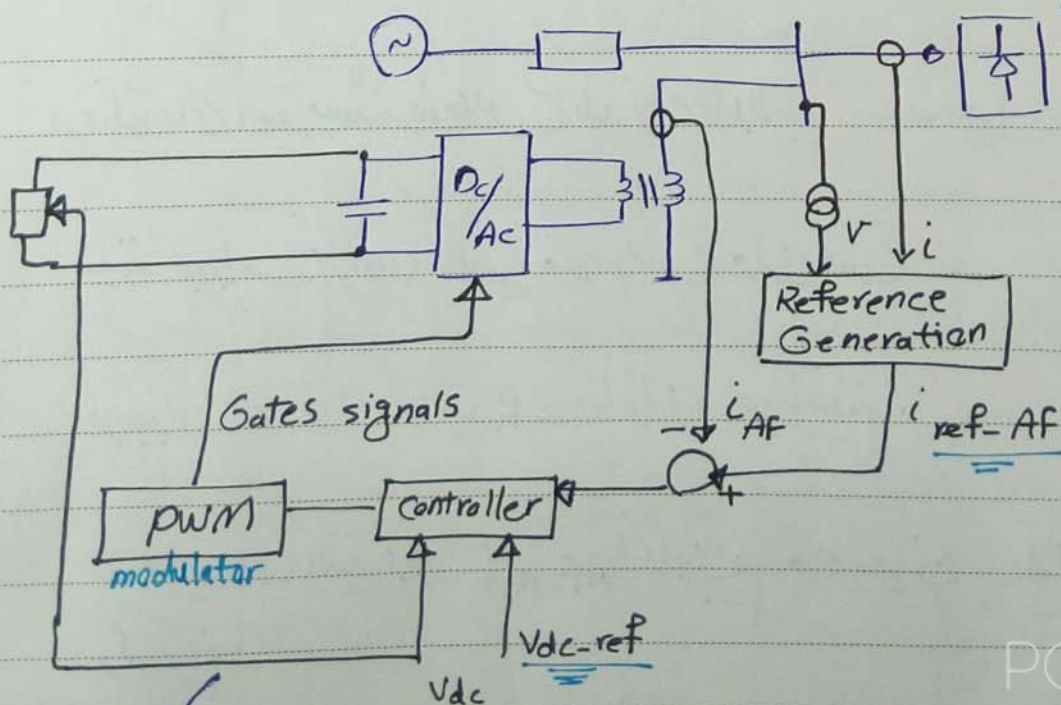 ~
Dc/
Ac
V
i
Reference
Generation
Gates signals
i AF
i ref-AF
-
+
PWM
modulator
Controller
Vdc-ref
Vdc
PO